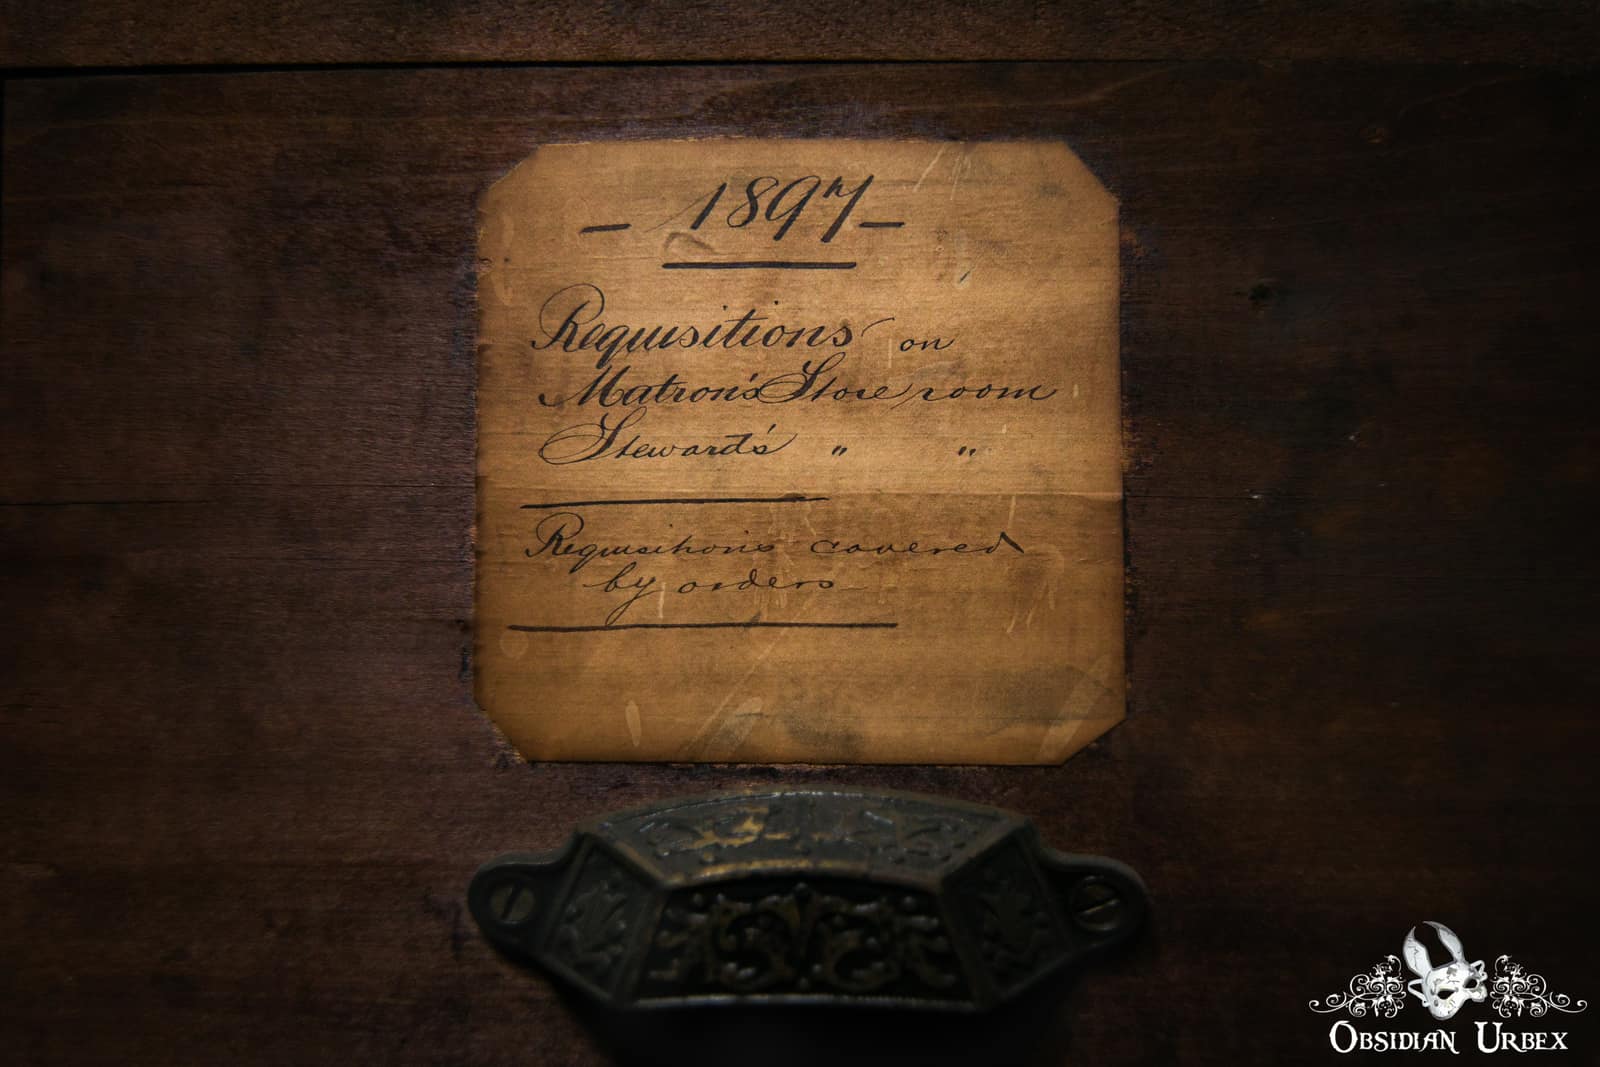 - 1897 -
Requisitions on
Matron's Store room
Steward's " "
Requisitions covered
by orders
OBSIDIAN URBEX